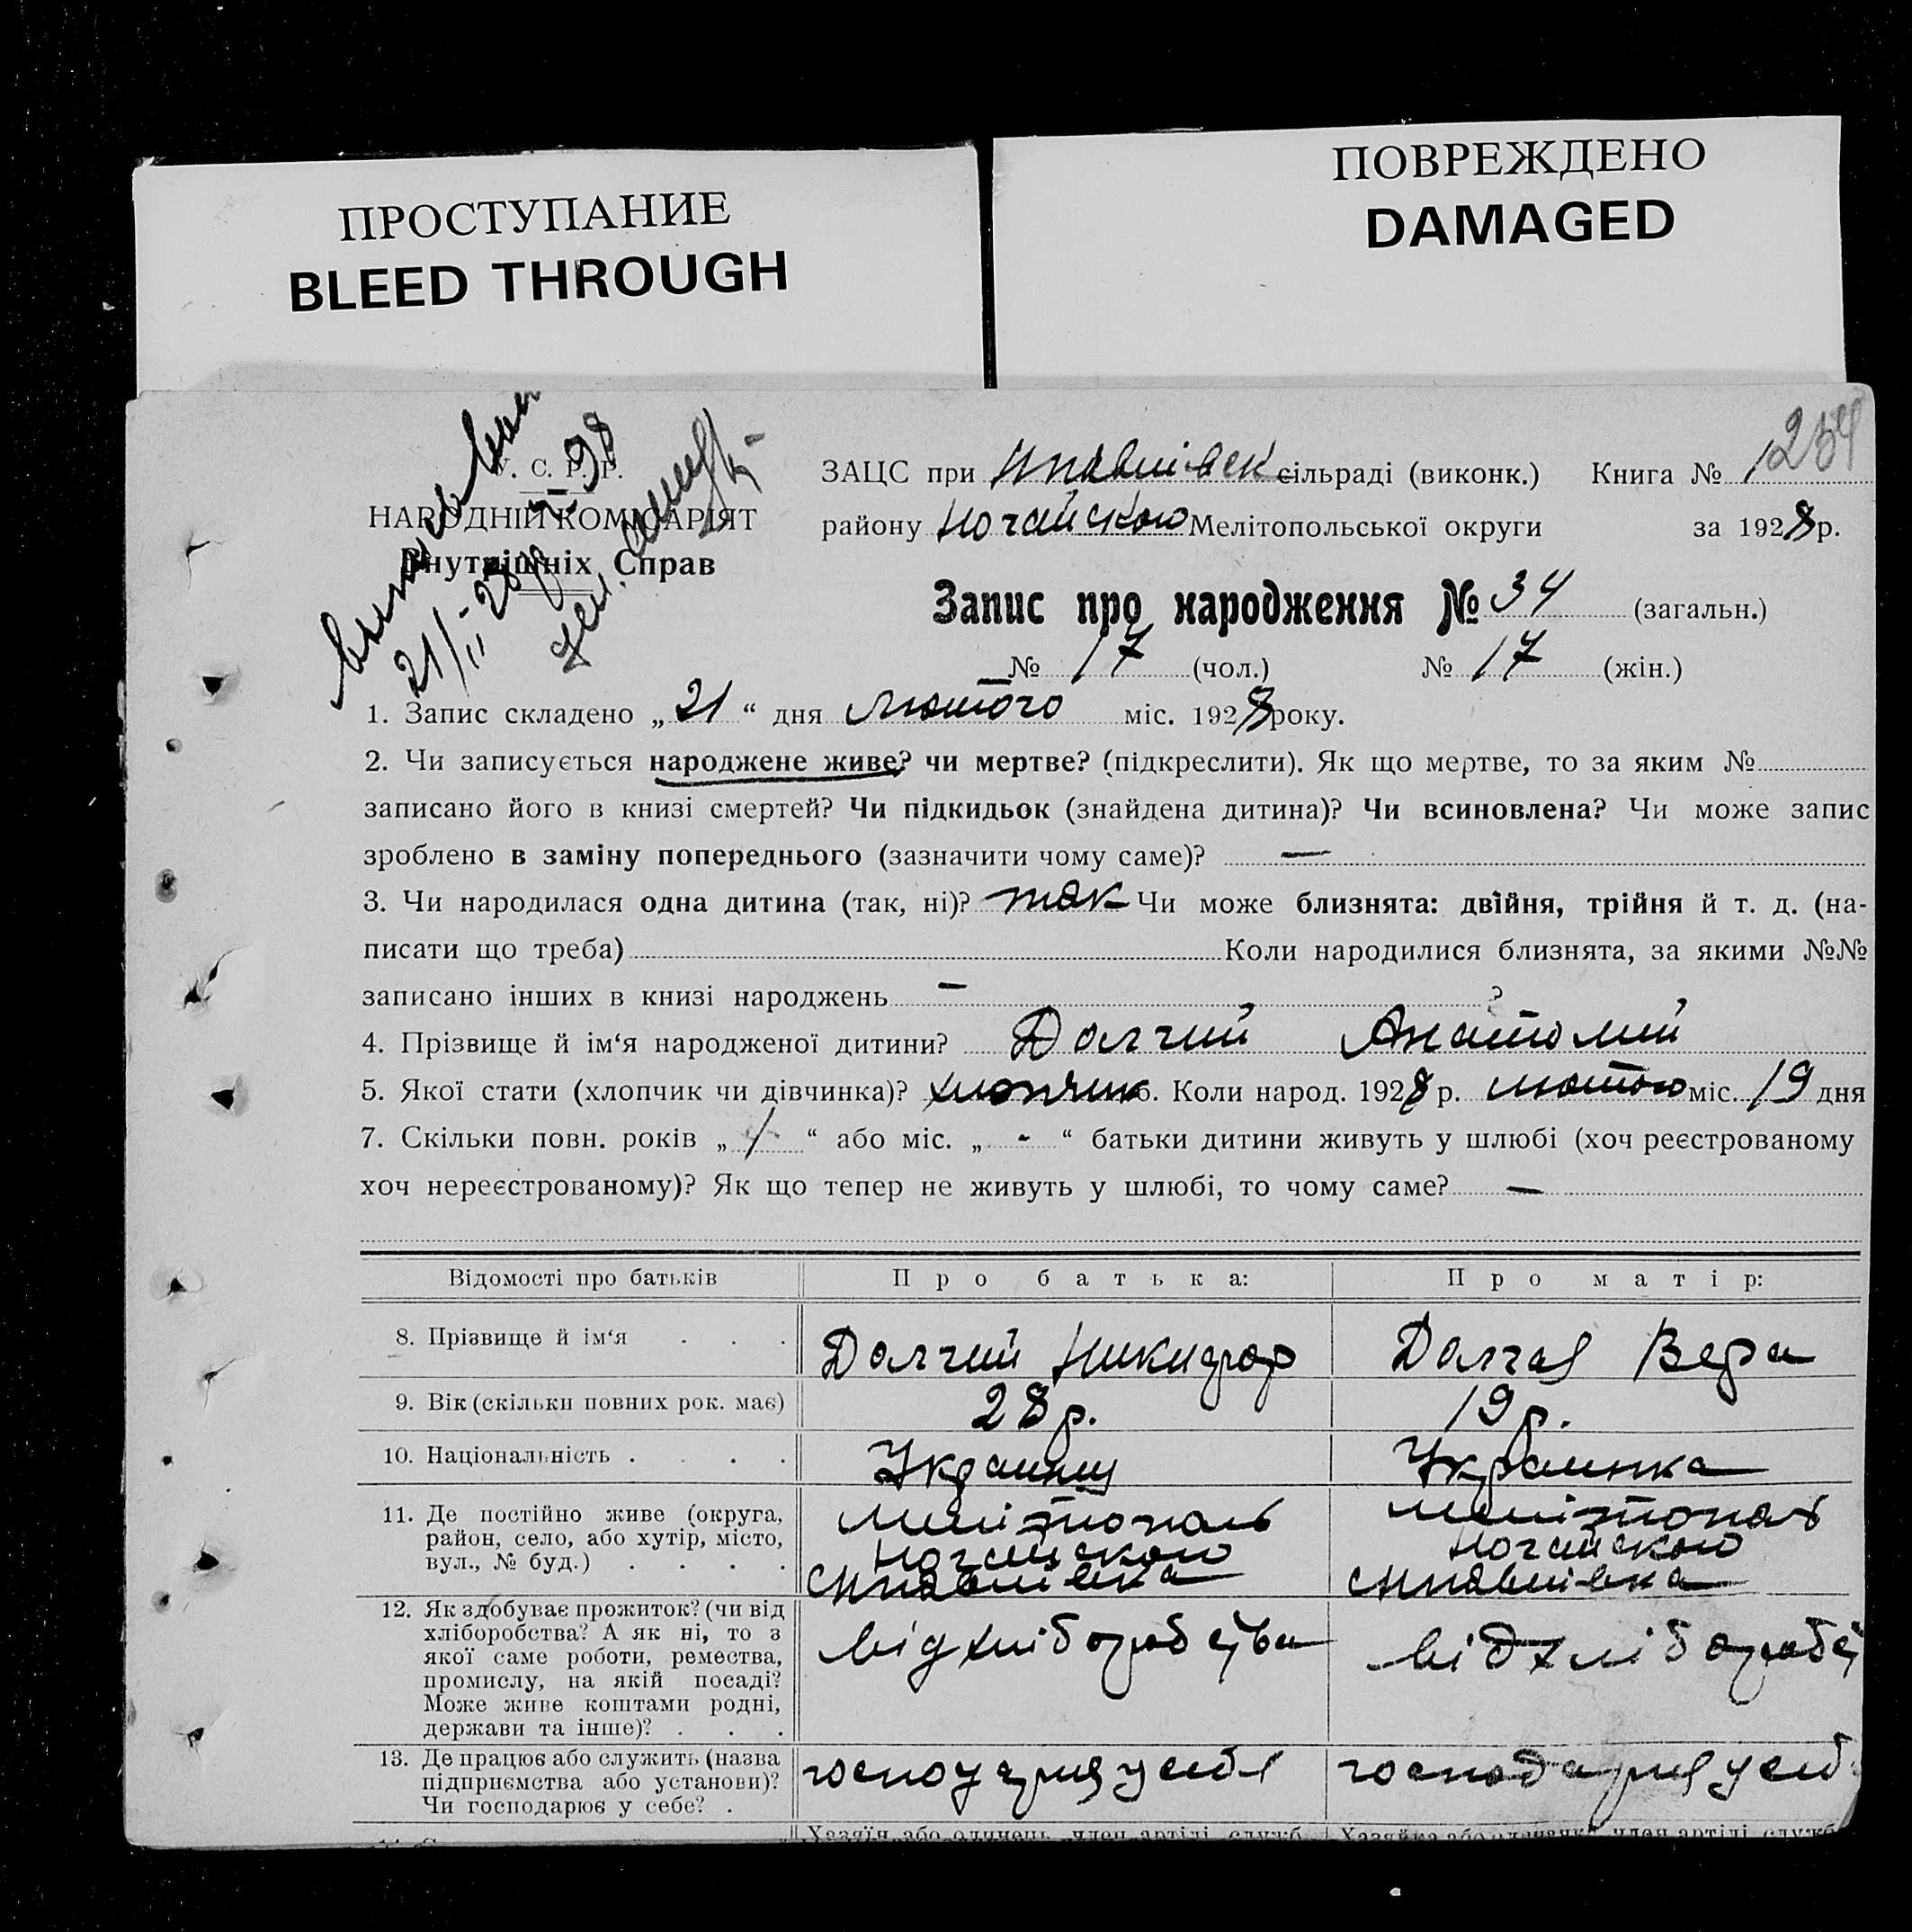 ПРОСТУПАНИЕ
BLEED THROUGH
ПОВРЕЖДЕНО
DAMAGED
У. С. Р. Р.
НАРОДНІЙ КОМІСАРІЯТ
Внутрішніх Справ
21/II-28
ЗАЦС при сільраді (виконк.) Книга № 1
району Ногайского Мелітопольської округи за 1928 р.
Запис про народження № 34 (загальн.)
№ 17 (чол.) № 17 (жін.)
1. Запис складено „ 21 “ дня лютого міс. 1928 року.
2. Чи записується народжене живе? чи мертве? (підкреслити). Як що мертве, то за яким №
записано його в книзі смертей? Чи підкидьок (знайдена дитина)? Чи всиновлена? Чи може запис
зроблено в заміну попереднього (зазначити чому саме)? —
3. Чи народилася одна дитина (так, ні)? так Чи може близнята: двійня, трійня й т. д. (на-
писати що треба) Коли народилися близнята, за якими №№
записано інших в книзі народжень — ?
4. Прізвище й ім‘я народженої дитини? Долгий Анатолий
5. Якої стати (хлопчик чи дівчинка)? хлопчик 6. Коли народ. 1928 р. лютого міс. 19 дня
7. Скільки повн. років „ 1 “ або міс. „ - “ батьки дитини живуть у шлюбі (хоч реєстрованому
хоч нереєстрованому)? Як що тепер не живуть у шлюбі, то чому саме? —
Відомості про батьків Про батька: Про матір:
8. Прізвище й ім‘я . . . Долгий Никифор Долгая Вера
9. Вік (скільки повних рок. має) 28 р. 19 р.
10. Національність . . . . Украинец Украинка
11. Де постійно живе (округа, Мелітополь Мелітополь
район, село, або хутір, місто, Ногайского Ногайского
вул., № буд.) . . . .
12. Як здобуває прожиток? (чи від
хліборобства? А як ні, то з від хліборобства від хліборобс
якої саме роботи, ремества,
промислу, на якій посаді?
Може живе коштами родні,
держави та інше)? . . .
13. Де працює або служить (назва
підприємства або установи)?
Чи господарює у себе? .
Хазяїн або одинець, член артілі, служб.